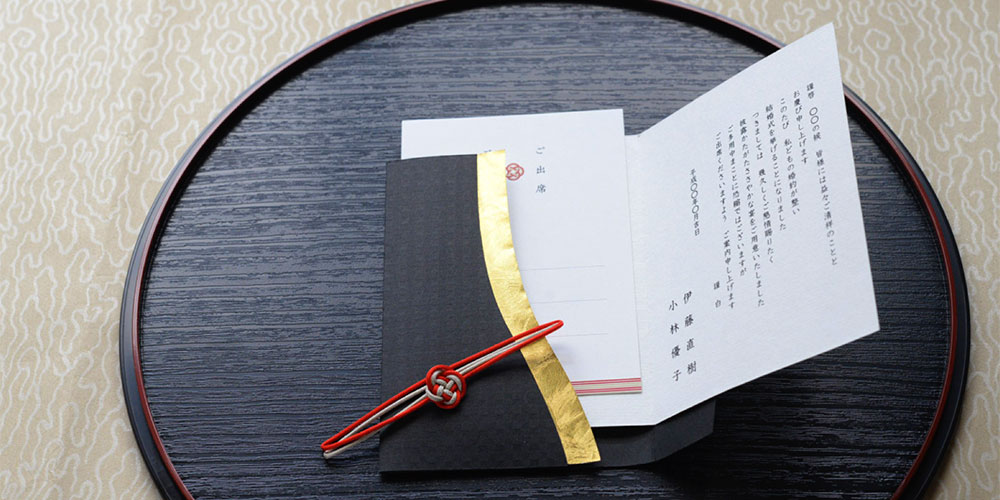 謹啓 〇〇の候 皆様には益々ご清祥のことと
お慶び申し上げます
このたび 私どもの婚約が整い
結婚式を挙げることになりました
つきましては 幾久しくご懇情賜りたく
披露かたがたささやかな宴をご用意いたしました
ご多用中まことに恐縮ではございますが
ご出席くださいますよう ご案内申し上げます
謹白
平成〇〇年〇月吉日
伊藤直樹
小林優子
ご出席